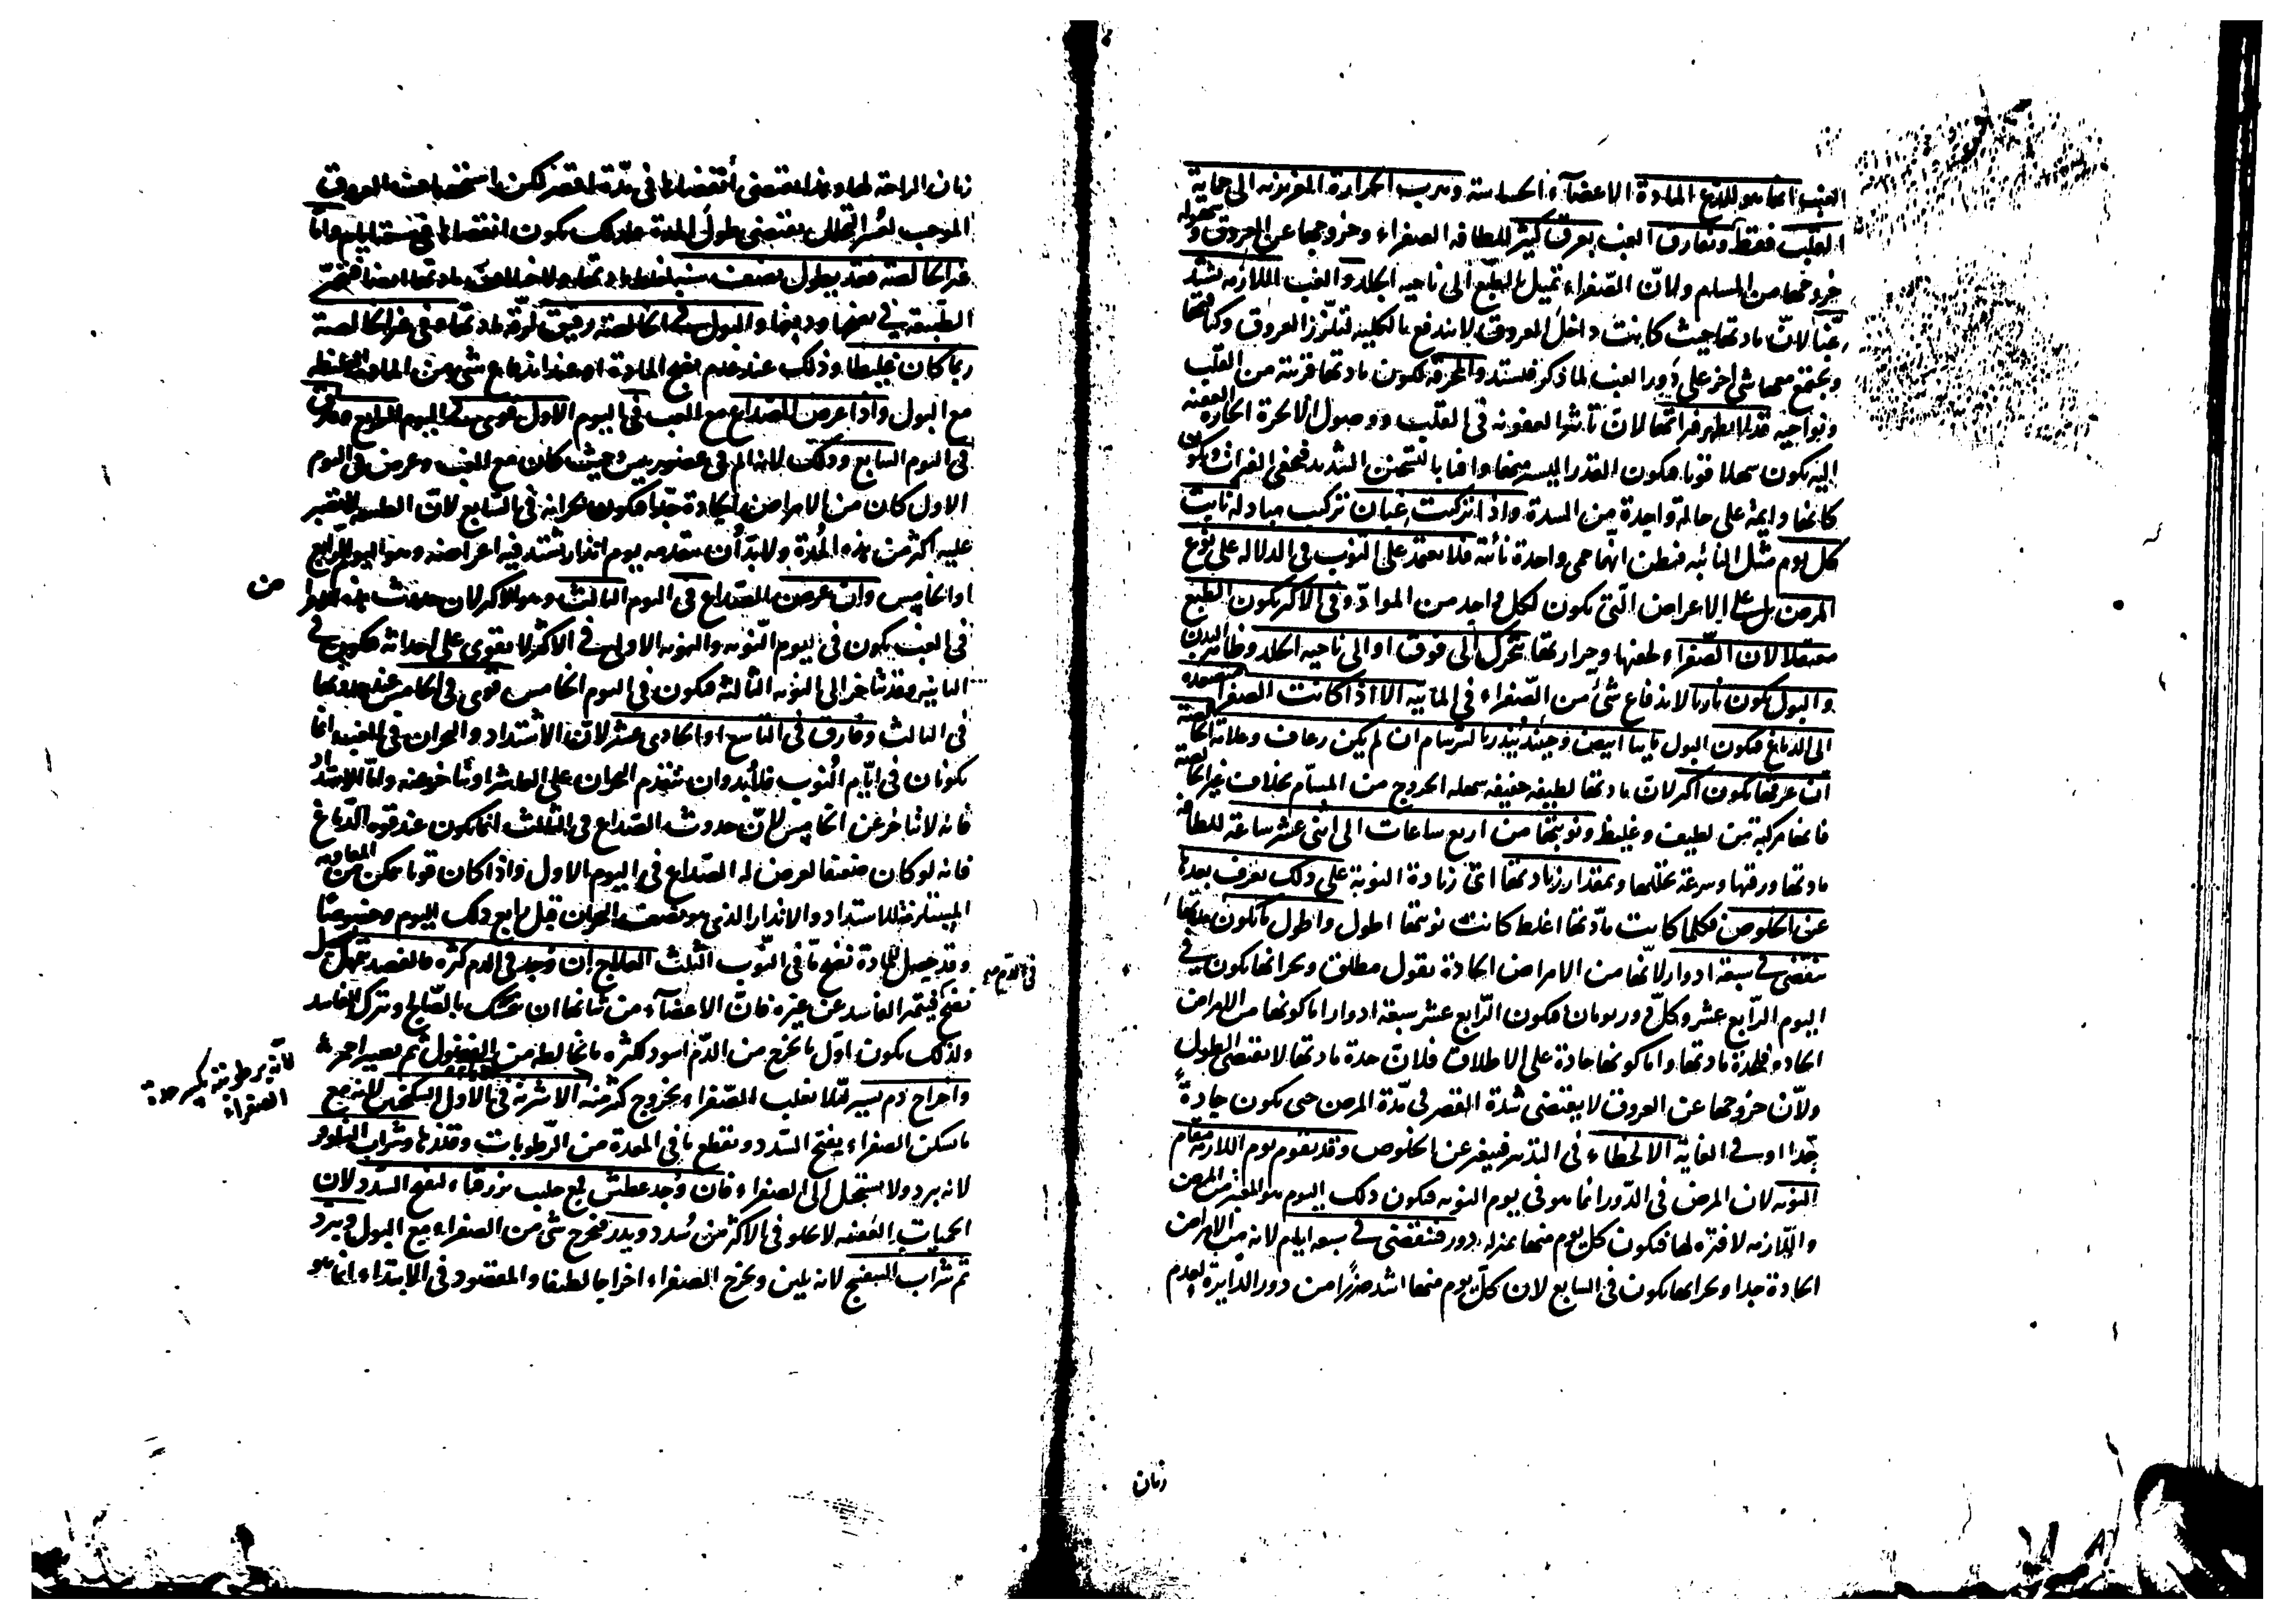 الغب انما هو للذع المادة الاعضاء الحساسة وهرب الحرارة الغريزية الى حماية
القلب فقط وتفارق الغب بعرق كثير للطافة الصفراء وخروجها عن العروق وسهولة
خروجها من المسام ولان الصفراء تميل بالطبع الى ناحية الجلد والغب اللازمة تشتد
غبا لان مادتها حيث كانت داخل العروق لا يندفع بالكلية لتلزز العروق وكثافتها
ويجتمع معها شئ اخر على دور الغب لما ذكر فتشتد والمحرقة لكون مادتها قريبة من القلب
ونواحيه قد لا يظهر فتراتها لان تاثير العفونة في القلب ووصول الابخرة الحارة العفنة
اليه يكون سهلا قويا فيكون القدر اليسير منها وافيا بالتسخين الشديد فيخفى الفترات ويكون
كانها دايمة على حالة واحدة من الشدة واذا تركبت غبان تركيب مبادلة نابت
كل يوم مثل النائبة فيظن انها حمى واحدة نائبة فلا يعتمد على النوب في الدلالة على نوع
المرض بل على الاعراض التي يكون لكل واحد من المواد وفي الاكثر يكون الطبع
معتقلا لان الصفراء لخفتها وحرارتها تتحرك الى فوق او الى ناحية الجلد وظاهر البدن
والبول يكون ناريا لاندفاع شئ من الصفراء في المائية الا اذا كانت الصفراء متصعدة
الى الدماغ فيكون البول ابيض وحينئذ ينذر بالسرسام ان لم يكن رعاف وعلامة الخالصة
ان عرقها يكون اكثر لان مادتها لطيفة خفيفة سهلة الخروج من المسام بخلاف غير الخالصة
فانها مركبة من لطيف وغليظ ونوبتها من اربع ساعات الى اثنى عشر ساعة للطافة
مادتها ورقتها وسرعة تحللها وبمقدار زيادتها اى زيادة النوبة على ذلك يعرف بعدها
عن الخلوص فكلما كانت مادتها اغلظ كانت نوبتها اطول واطول ما تكون
تنقضى في سبعة ادوار لانها من الامراض الحادة بقول مطلق وبحرانها يكون في
اليوم الرابع عشر وكل دور يومان فيكون الرابع عشر سبعة ادوار اما كونها من الامراض
الحادة فلحدة مادتها واما كونها حادة على الاطلاق فلان حدة مادتها لا يقتضى الطول
ولان خروجها عن العروق لا يقتضى شدة القصر في مدة المرض حتى يكون حادة
جدا او في الغاية الا لخطاء في التدبير فيغير عن الخلوص وقد يقوم يوم اللازمة مقام
النوبة لان المرض في الدور انما هو في يوم النوبة فيكون ذلك اليوم هو المعتبر من المرض
واللازمة لا فترة لها فيكون كل يوم منها بمنزلة دور فتنقضى في سبعة ايام لانه من الامراض
الحادة جدا وبحرانها يكون في السابع لان كل يوم منها اشد ضررا من دور الدايرة لعدم
زمان
زمان الراحة لها وهذا يقتضى انقضاءها في مدة اقصر لكن استحصاف العروق
الموجب لعسر التحلل يقتضى طول المدة فلذلك يكون انقضاءها في سبعة ايام واما
غير الخالصة فقد يطول نصف سنة لغلظ مادتها ولاختلاف مادتها ايضا فتتحير
الطبيعة في نضجها ودفعها والبول في الخالصة رقيق لرقة مادتها وفي غير الخالصة
ربما كان غليظا وذلك عند عدم نضج المادة او عند اندفاع شئ من المادة الغليظة
مع البول واذا عرض الصداع مع الغب في اليوم الاول قوى في اليوم الرابع وفارق
في اليوم السابع وذلك لانه الم في عضو رئيس وحيث كان مع الغب وعرض في اليوم
الاول كان من الامراض الحادة جدا فيكون بحرانه في السابع لان الطبيعة لا تصبر
عليه اكثر من هذه المدة ولا بد ان يتقدمه يوم انذار تشتد فيه اعراضه وهو اليوم الرابع
او الخامس وان عرض الصداع في اليوم الثالث وهو الاكثر لان حدوث هذه
من
في الغب يكون في يوم النوبة والنوبة الاولى في الاكثر لا تقوى على احداثه فيكون في
الثانية وقد يتاخر الى النوبة الثالثة فيكون في اليوم الخامس قوى في الخامس عند حدوثها
في الثالث وفارق في التاسع او الحادى عشر لان الاشتداد والبحران في الغب انما
يكونان في ايام النوب فلا بد وان يتقدم البحران على العاشر او يتاخر عنه واما الاشتداد
فانه لا يتاخر عن الخامس لان حدوث الصداع في الثالث انما يكون عند قوة الدماغ
فانه لو كان ضعيفا لعرض له الصداع في اليوم الاول واذا كان قويا تمكن من المقاومة
المستلزمة للاشتداد والانذار الذى هو نصف البحران قبل رابع ذلك اليوم وخصوصا
وقد حصل للمادة نضج ما في النوب الثلث العلاج ان وجد في الدم كثرة فالفصد
في الدم
نضج فيتميز الفاسد عن غيره فان الاعضاء من شانها ان تمسك بالصالح وتترك الفاسد
ولذلك يكون اول ما يخرج من الدم اسود لكثرة ما يخالطه من الفضول ثم يصير احمر
واخراج دم يسير لئلا تغلب الصفراء بخروج كثير منه الاشربة في الاول السكنجبين لانه مع
لانه برطوبته يكسر حدة
الصفراء
ما يسكن الصفراء يفتح السدد ويقطع ما في المعدة من الرطوبات وشراب النيلوفر
لانه يبرد ولا يستحيل الى الصفراء فان وجد عطش فمع حليب بزر قثاء لفتح السدد لان
الحميات العفنة لا تخلو في الاكثر من سدد ويدر فيخرج شئ من الصفراء مع البول ويبرد
ثم شراب البنفسج لانه يلين ويخرج الصفراء اخراجا لطيفا والمقصود في الابتداء انما هو